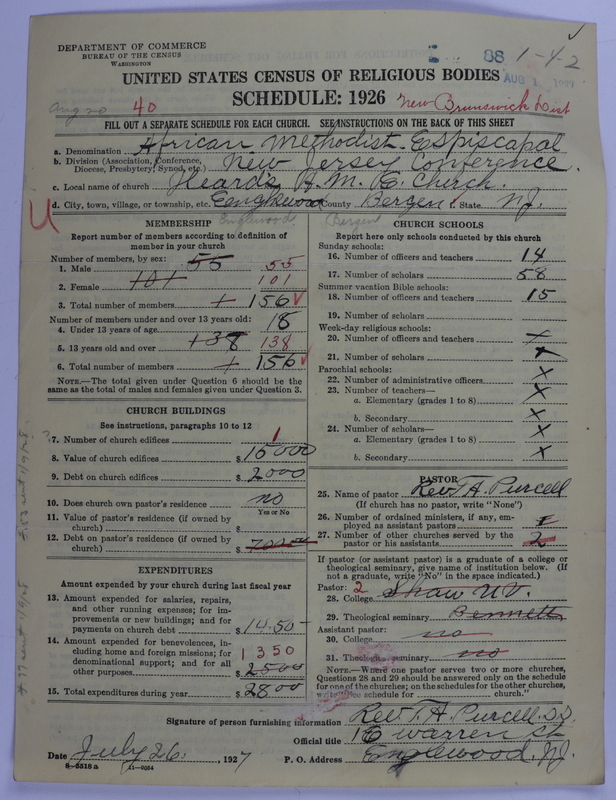 DEPARTMENT OF COMMERCE
BUREAU OF THE CENSUS
WASHINGTON
88 1-4-2
AUG 1
UNITED STATES CENSUS OF RELIGIOUS BODIES
SCHEDULE: 1926
40
New Brunswick Dist
FILL OUT A SEPARATE SCHEDULE FOR EACH CHURCH. SEE INSTRUCTIONS ON THE BACK OF THIS SHEET
a. Denomination African Methodist Espiscapal
b. Division (Association, Conference, Diocese, Presbytery, Synod, etc.) New Jersey Conference.
c. Local name of church Heard's A.M.E. Church.
d. City, town, village, or township, etc. Eenglwood County Bergen f. State N.J.
Englewood Bergen
MEMBERSHIP
Report number of members according to definition of member in your church
Number of members, by sex:
1. Male 55 55
2. Female 101 101
3. Total number of members 156
Number of members under and over 13 years old:
4. Under 13 years of age 18
5. 13 years old and over 138 138
6. Total number of members 156
NOTE.—The total given under Question 6 should be the same as the total of males and females given under Question 3.
CHURCH BUILDINGS
See instructions, paragraphs 10 to 12
7. Number of church edifices 1
8. Value of church edifices $ 15000
9. Debt on church edifices $ 2000
10. Does church own pastor's residence no
Yes or No
11. Value of pastor's residence (if owned by church) $
12. Debt on pastor's residence (if owned by church) $
EXPENDITURES
Amount expended by your church during last fiscal year
13. Amount expended for salaries, repairs, and other running expenses; for improvements or new building; and for payments on church debt $ 1450
14. Amount expended for benevolences, including home and foreign missions; for denominational support; and for all other purposes 1350 $ 2500
15. Total expenditures during year $ 2800
CHURCH SCHOOLS
Report here only schools conducted by this church
Sunday schools:
16. Number of officers and teachers 14
17. Number of scholars 58
Summer vacation Bible schools:
18. Number of officers and teachers 15
19. Number of scholars
Week-day religious schools:
20. Number of officers and teachers X
21. Number of scholars X
Parochial schools:
22. Number of administrative officers X
23. Number of teachers—
a. Elementary (grades 1 to 8) X
b. Secondary X
24. Number of scholars—
a. Elementary (grades 1 to 8) X
b. Secondary X
PASTOR
25. Name of pastor Rev. T. A. Purcell
(If church has no pastor, write "None")
26. Number of ordained ministers, if any, employed as assistant pastors
27. Number of other churches served by the pastor or his assistants 2
If pastor (or assistant pastor) is a graduate of a college or theological seminary, give name of institution below. (If not a graduate, write "No" in the space indicated.)
Pastor: 2
28. College Shaw UV.
29. Theological seminary Bennett
Assistant pastor:
30. College no
31. Theological seminary no
NOTE.—Where one pastor serves two or more churches, Questions 28 and 29 should be answered only on the schedule for one of the churches; on the schedules for the other churches, write "See schedule for church."
Signature of person furnishing information Rev. T. A. Purcell. D.D.
Official title 16 Warren
Date July 26, 1927 P. O. Address Englewood, N.J.
8-5518a 11-9064